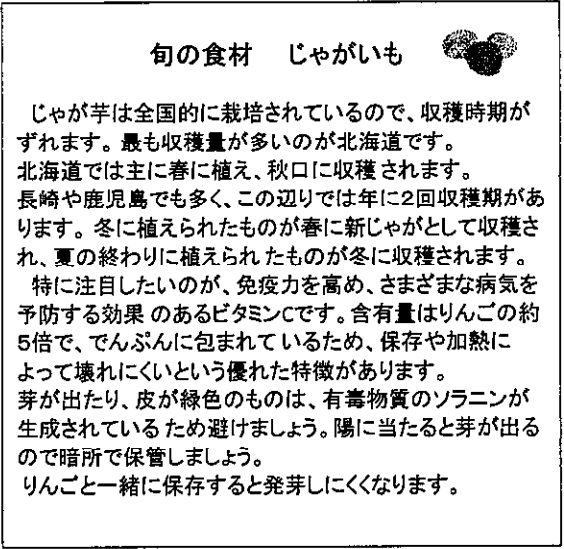 旬の食材　じゃがいも
じゃが芋は全国的に栽培されているので、収穫時期が
ずれます。最も収穫量が多いのが北海道です。
北海道では主に春に植え、秋口に収穫されます。
長崎や鹿児島でも多く、この辺りでは年に２回収穫期があ
ります。冬に植えられたものが春に新じゃがとして収穫さ
れ、夏の終わりに植えられたものが冬に収穫されます。
特に注目したいのが、免疫力を高め、さまざまな病気を
予防する効果のあるビタミンCです。含有量はりんごの約
5倍で、でんぷんに包まれているため、保存や加熱に
よって壊れにくいという優れた特徴があります。
芽が出たり、皮が緑色のものは、有毒物質のソラニンが
生成されているため避けましょう。陽に当たると芽が出る
ので暗所で保管しましょう。
りんごと一緒に保存すると発芽しにくくなります。